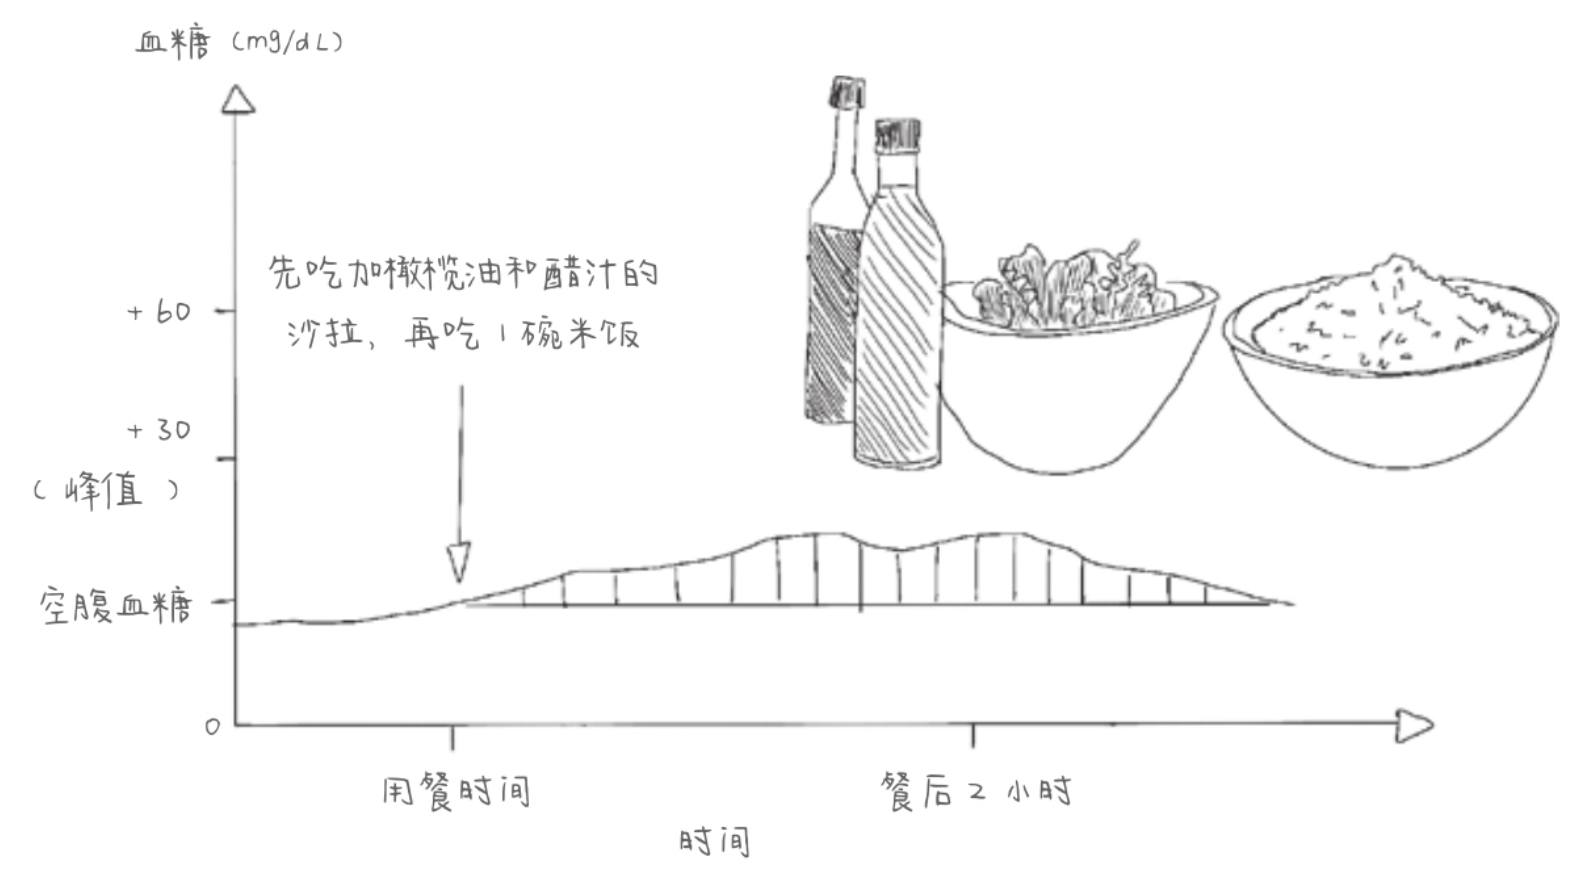 血糖（mg/dL）
先吃加橄榄油和醋汁的
沙拉，再吃1碗米饭
+60
+30
（峰值）
空腹血糖
0
用餐时间
餐后2小时
时间